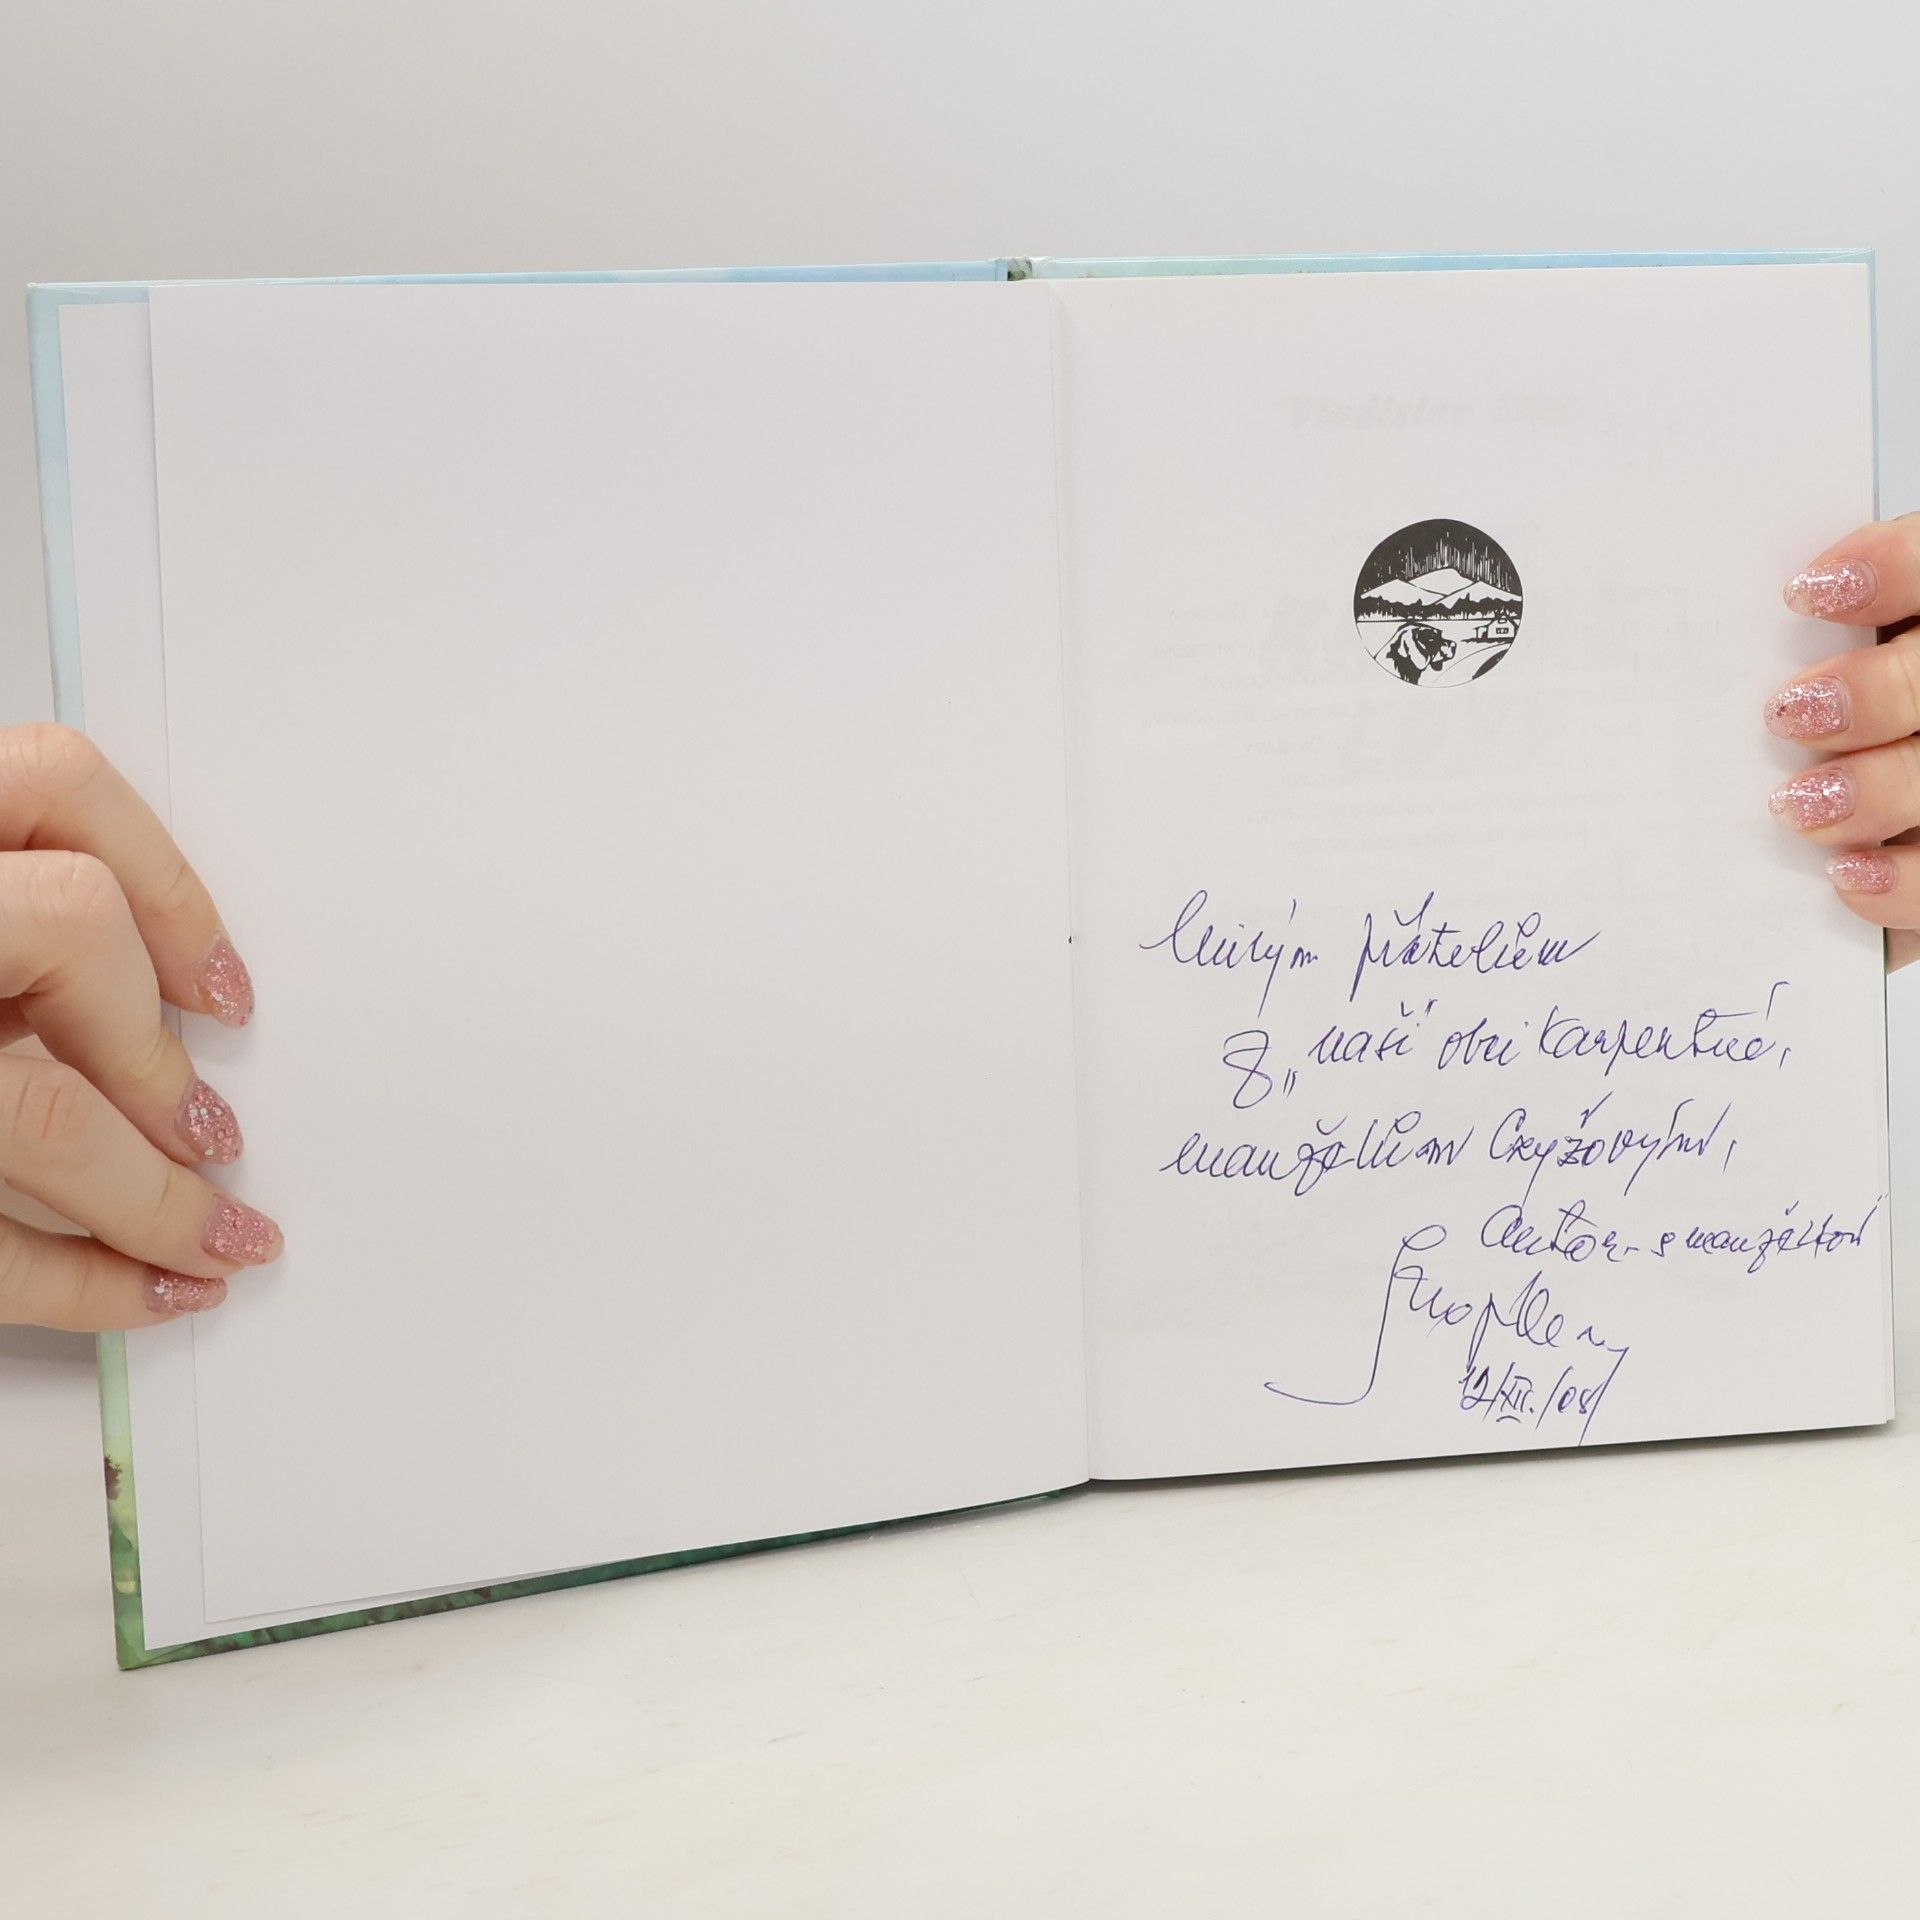 milým přátelům
z „naší" obci Karpentné,
manželům Czyžovým,
autor s manželkou
12/XII./08